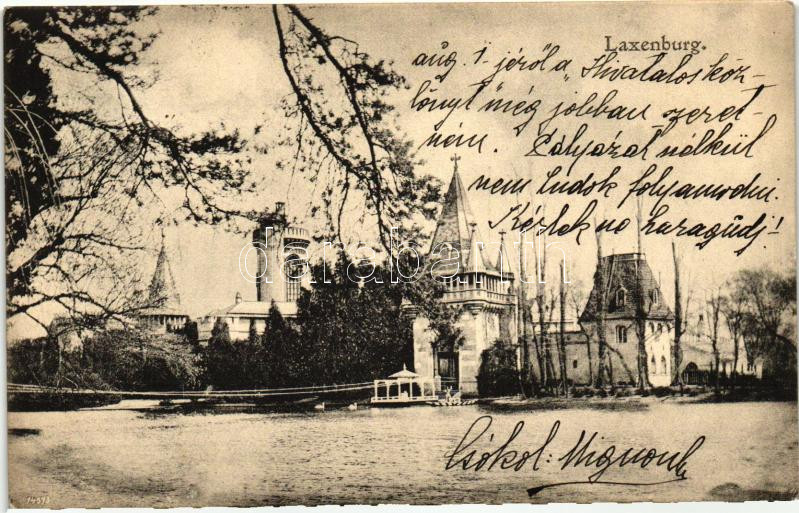 Laxenburg.
aug. 1. jéről a „Hivatalos köz-
lönyt" még jobban szeret-
ném. Pályázat nélkül
nem tudok folyamodni.
Kérlek ne haragüdj!
darabanth
Csókol: Mignon
14573